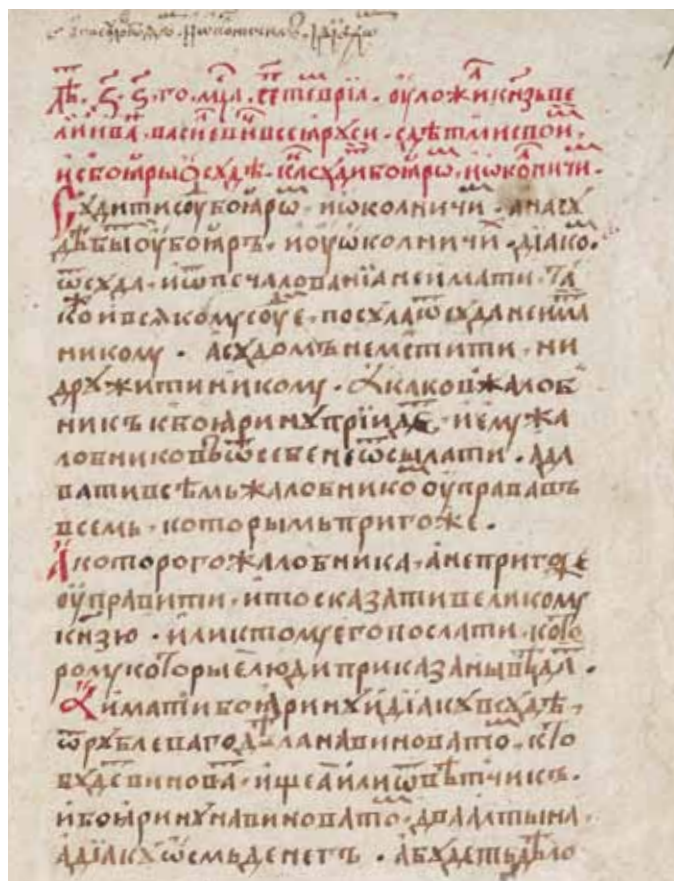 Лѣⷮ. ҂ꙅ҃. ꙅ҃.го. мцⷭ҇а. сеⷫтеврїа. оуложи кнꙗⷥь ве
ликїи ива васиевиⷱ всеꙗ рꙋси. з дѣтми своиⷨ,
и с боꙗры ѡ сꙋдѣ. каⷦ сꙋдиⷮ боꙗрѡⷨ, и ѡколничиⷨ.
Сꙋдити сꙋⷣ боꙗрѡⷨ. и ѡколничиⷨ. а на сꙋ
дѣ быⷮ оу боꙗръ. и оу ѡколничиⷯ. дїакоⷨ.
а посꙋлоⷡ ѿ сꙋда. и ѿ печалованїа не имати. та
коⷤ и всꙗкомꙋ сꙋдїе. посꙋла ѿ сꙋда не имаⷮ
никомꙋ. а сꙋдомъ не мстити. ни
дрꙋжити никомꙋ. А каковъ жалоб
никъ к боꙗринꙋ прїидеⷮ. и емꙋ жа
лобниковъ ѿ себе не ѿсылати. а да
вати всѣмь жалобникоⷨ оуправа въ
всемь. которымь пригоже.
А которого жалобника. а не пригоже
оуправити. и то сказати великомꙋ
кнꙗзю. или к томꙋ его послати. кото
ромꙋ которые люди приказаны вѣдаⷮ.
А имати боꙗринꙋ и дїакꙋ в сꙋдѣ.
ѿ рꙋблеваго дѣла на виноватоⷨ. кто
бꙋдеⷮ виноваⷮ. ищеа или ѿвѣтчикъ.
и боꙗринꙋ на виноватоⷨ. два алтына.
а дїакꙋ ѡсмь денегъ. а бꙋдеть дѣло